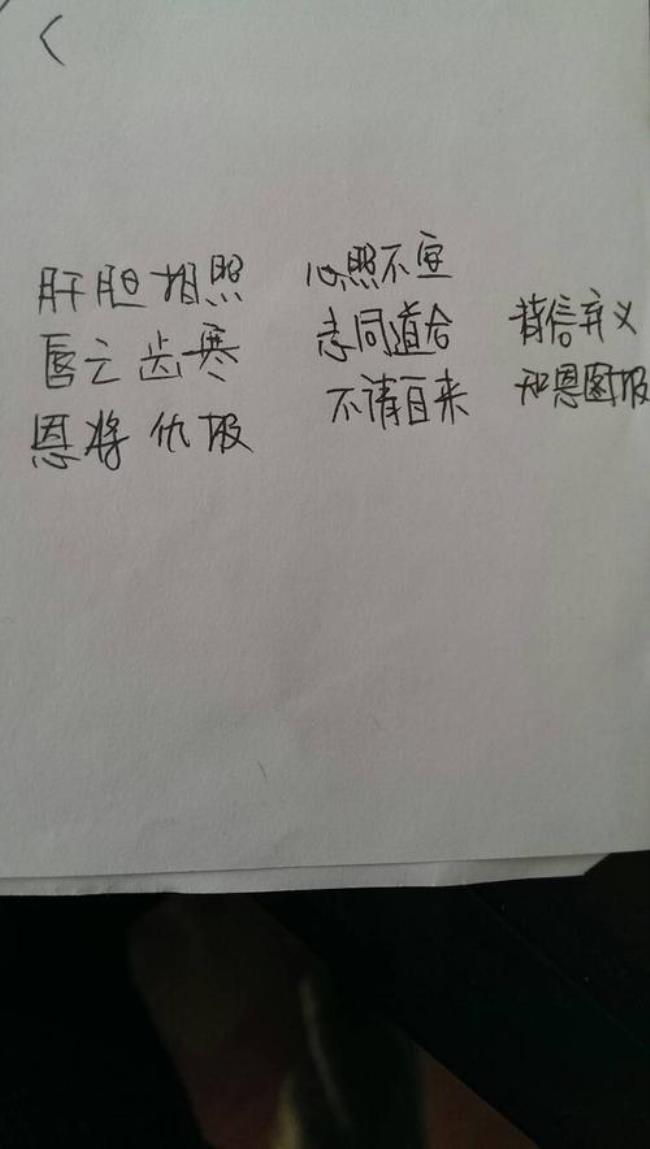 肝胆相照 心照不宣
唇亡齿寒 志同道合 背信弃义
恩将仇报 不请自来 知恩图报